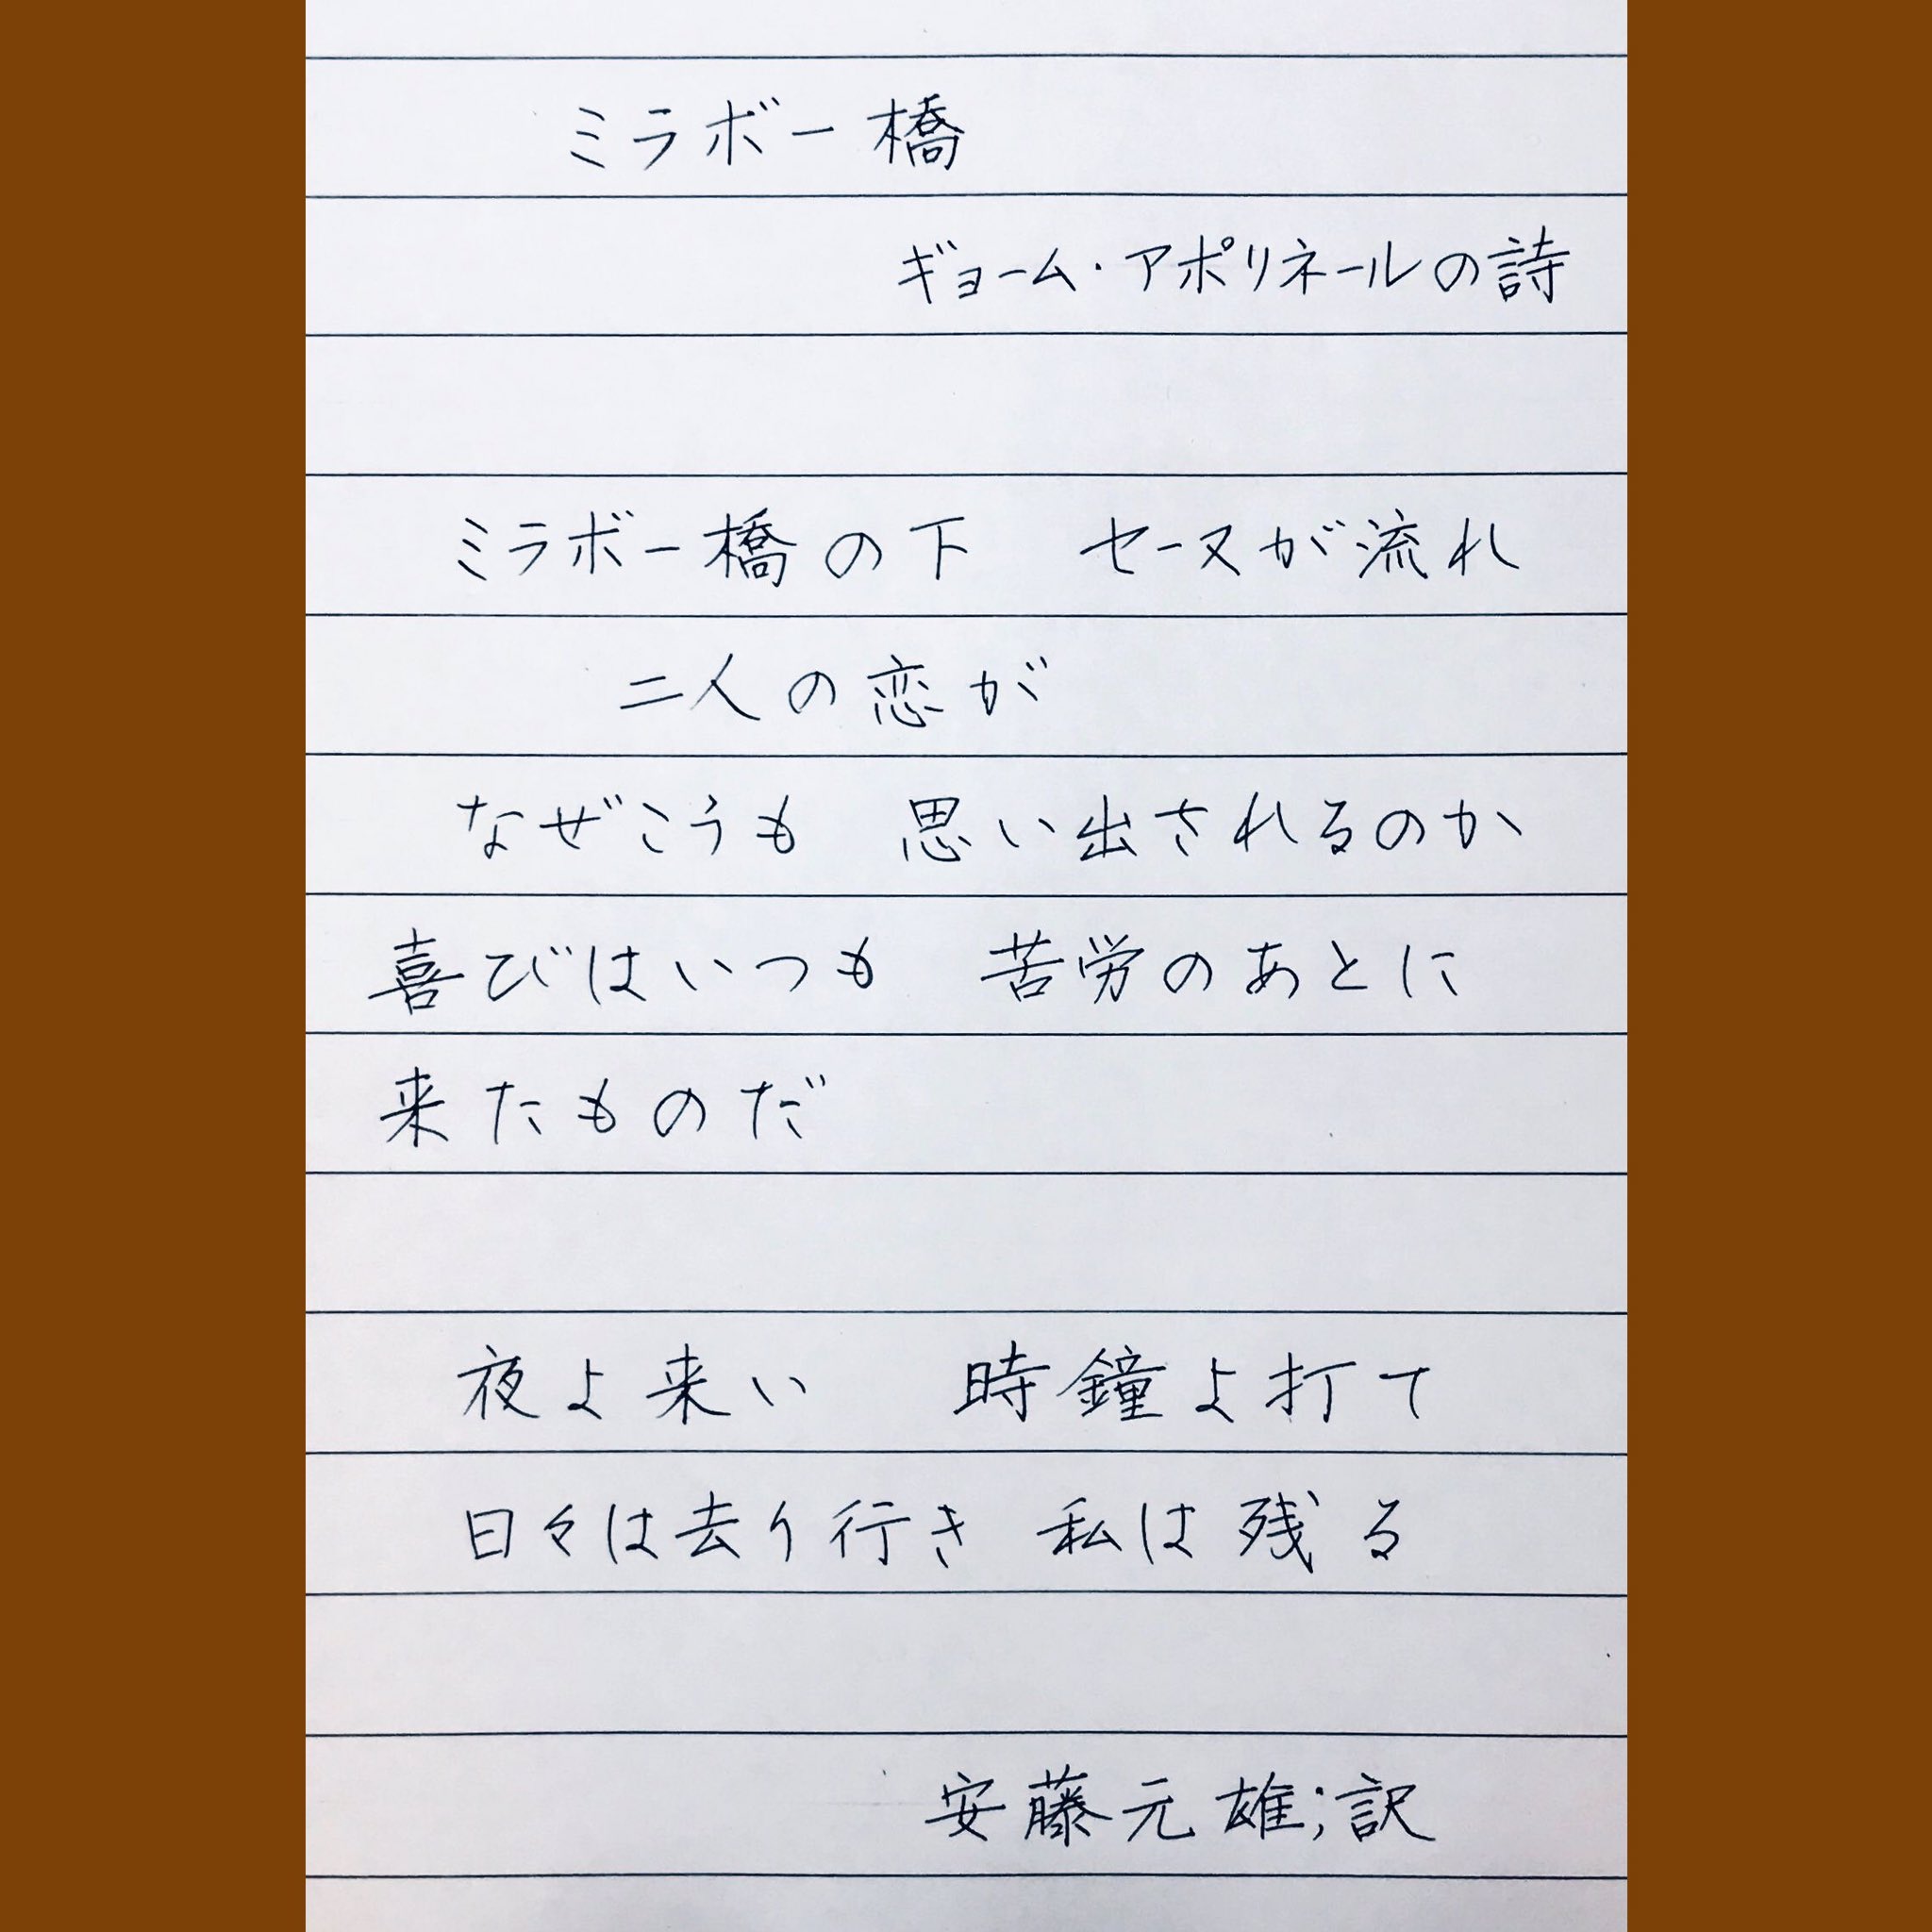 ミラボー橋
ギョーム・アポリネールの詩
ミラボー橋の下　セーヌが流れ
二人の恋が
なぜこうも　思い出されるのか
喜びはいつも　苦労のあとに
来たものだ
夜よ来い　時鐘よ打て
日々は去り行き　私は残る
安藤元雄;訳